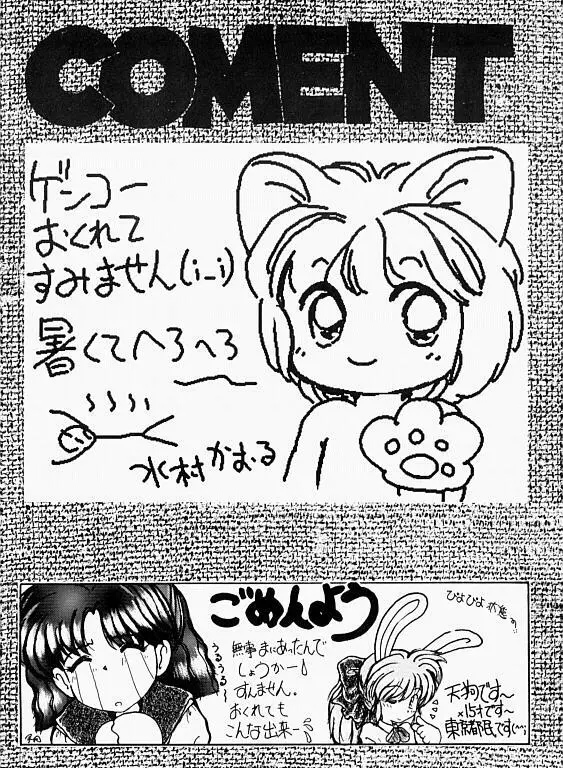 COMENT
ゲンコー
おくれて
すみません(i_i)
暑くてへろへろ
水村かおる
ごめんよう
うるうる〜
無事まにあったんで
しょうかー
すんません。
おくれても
こんな出来ー
天狗です〜
東京都民です(^^;)